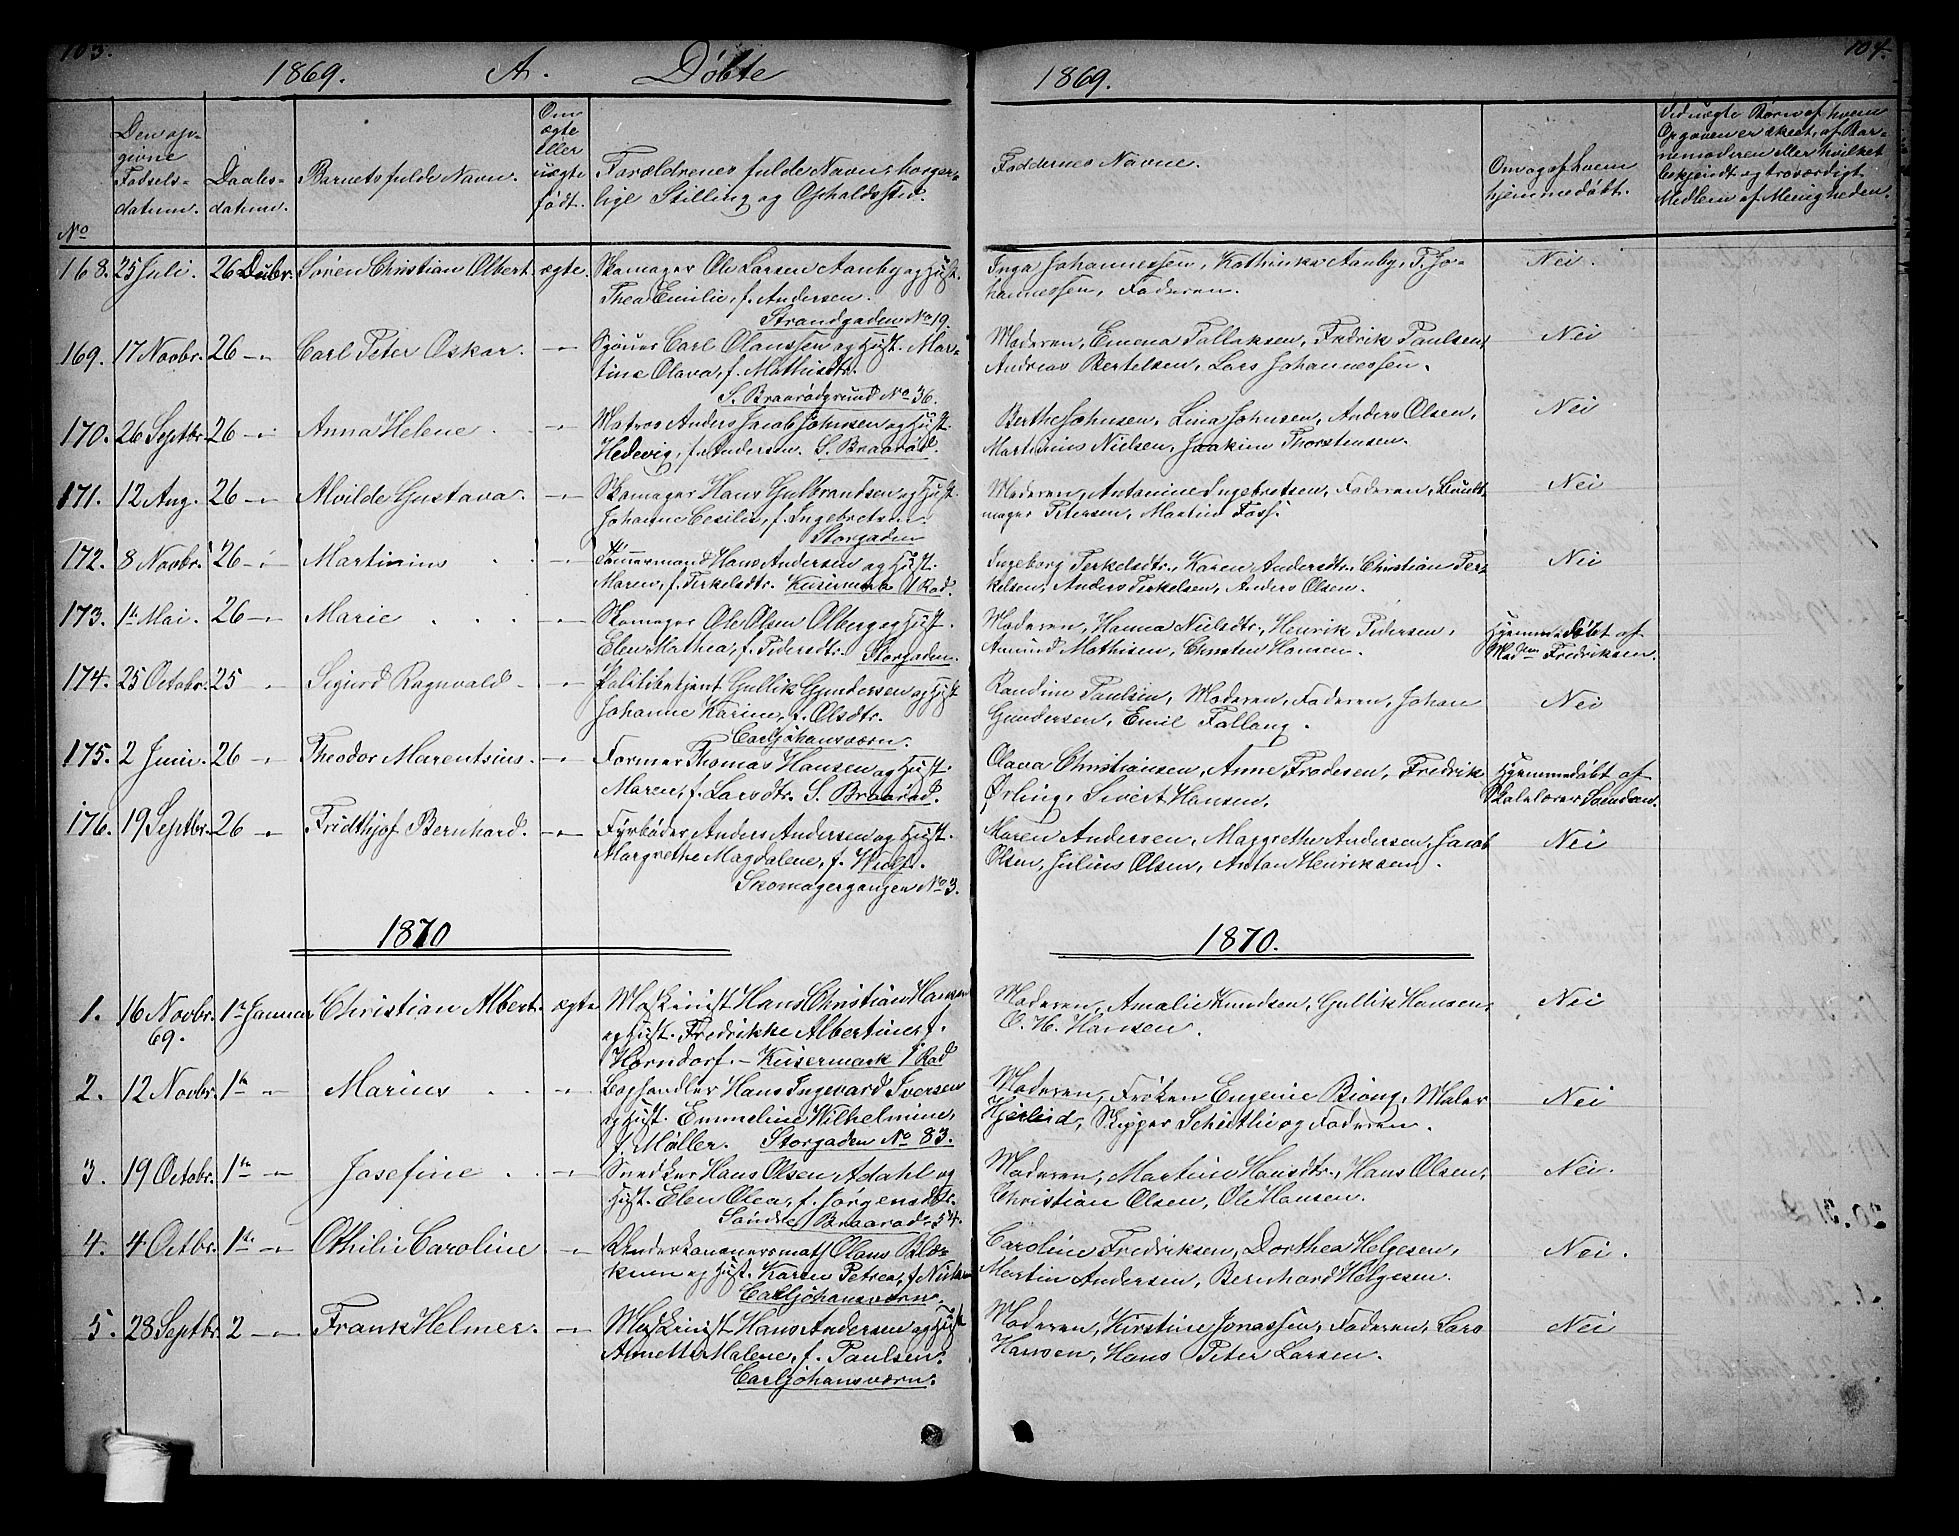 103.
1869. A. Døbte
No
Den opgivne Fødselsdatum.
Daabsdatum.
Barnets fulde Navn.
Om ægte eller uægte født.
Forældrenes fulde Navn, borgerlige Stilling og Opholdssted.
168. 25 Juli. 26 Decbr. Søren Christian Albert. ægte. Skomager Ole Larsen Aanby og Hust.
Thea Emilie, f. Andersen.
Strandgaden No 19.
169. 17 Novbr. 26 -"- Carl Peter Oskar. -"- Carl Olaussen og Hust. Mar-
tine Olava, f. Mathisdtr.
S. Braarødgrund No 36.
170. 26 Septbr. 26 -"- Anna Helene -"- Matros Anders Jacob Johnsen og Hust.
Hedevig, f. Andersen. S. Braarød.
171. 12 Aug. 26 -"- Alvilde Gustava. -"- Skomager Hans Gulbrandsen og Hust.
Johanne Cesilie, f. Ingebretsen.
Storgaden
172. 8 Novbr. 26 -"- Martinius -"- Tømmermand Hans Andersen og Hust.
Maren, f. Terkelsdtr. 1 Rad.
173. 1st Mai. 26 -"- Marie -"- Skomager Ole Olsen Olberg og Hust.
Elen Mathea, f. Pedersdtr. Storgaden.
174. 25 Octobr. 25 " Sigurd Ragnvald -"- Politibetjent Gullik Gundersen og Hust
Johanne Karine, f. Olsdtr.
Carljohansværn.
175. 2 Juni. 26 -"- Theodor Marentsius. -"- Former Thomas Hansen og Hust.
Maren, f. Larsdtr. S. Braarød.
176. 19 Septbr. 26 -"- Fridthjof Bernhard. -"- Fyrbøder Anders Andersen og Hust.
Margrethe Magdalene, f.
Skomagergangen No 3.
1870
1. 16 Novbr. 69. 1st Januar Christian Albert. ægte Maskinist Hans Christian Hansen
og Hust. Fredrikke Albertine, f.
Horndorf. - 1 Rad
2. 12 Novbr. 1st -"- Marius -"- Boghandler Hans Ingevard Iversen
og Hust. Emmeline Wilhelmine,
f. Møller. Storgaden No 83.
3. 19 Octobr. 1st -"- Josefine -"- Snedker Hans Olsen Adahl og
Hust. Elen Olea, f. Jørgensdtr.
Søndre Braarød, 54.
4. 4 Octbr. 1st -"- Othilie Caroline -"- Underkanonersmat Olaus
og Hust. Karen Petrea, f.
Carljohansværn.
5. 28 Septbr. 2 -"- Frank Helmer. -"- Maskinist Hans Andersen og Hust
Annette Malene, f. Paulsen.
Carljohansværn.
104.
1869.
Faddernes Navne.
Om og af hvem hjemmedøbt.
Ved uægte Børn af hvem Opgaven er skeet, af Barnemoderen eller hvilket bekjendt og troværdigt Medlem af Menigheden.
Inga Johannessen, Kathinka Aanby, T. Jo- Nei.
hannessen, Faderen.
Moderen, Emma Tallaksen, Fredrik Paulsen, Nei
Andreas Bertelsen, Lars Johannessen.
Berthe Johnsen, Lina Johnsen, Anders Olsen, Nei
Martinius Nielsen, Joakim Thorstensen.
Moderen, Antonine Ingebretsen, Faderen, Nei
mager Petersen, Martin Foss.
Ingeborg Terkelsdtr., Karen Andersdtr., Christian Ter- Nei
kelsen, Anders Terkelsen, Anders Olsen.
Moderen, Hanna Nielsdtr., Henrik Pedersen, Hjemmedøbt af
Amund Mathisen, Christen Hansen. Madm Fredriksen.
Randine Paulsen, Moderen, Faderen, Johan Nei
Gundersen, Emil Fallang.
Olava Christiansen, Anne Frodesen, Fredrik Hjemmedøbt af
Ørling, Sivert Hansen. Skolelærer
Maren Andersen, Maggrethe Andersen, Jacob Nei
Olsen, Julius Olsen, Anton Henriksen.
1870.
Moderen, Amalie Knudsen, Gullik Hansen, Nei
O. H. Hansen.
Moderen, Frøken Eugenie Biong, Maler Nei
Skipper og Faderen.
Moderen, Martine Hansdtr., Hans Olsen, Nei.
Christian Olsen, Ole Hansen.
Caroline Fredriksen, Dorthea Helgesen, Nei.
Martin Andersen, Bernhard Helgesen.
Moderen, Kirstine Jonassen, Faderen, Lars Nei
Hansen, Hans Peter Larsen.